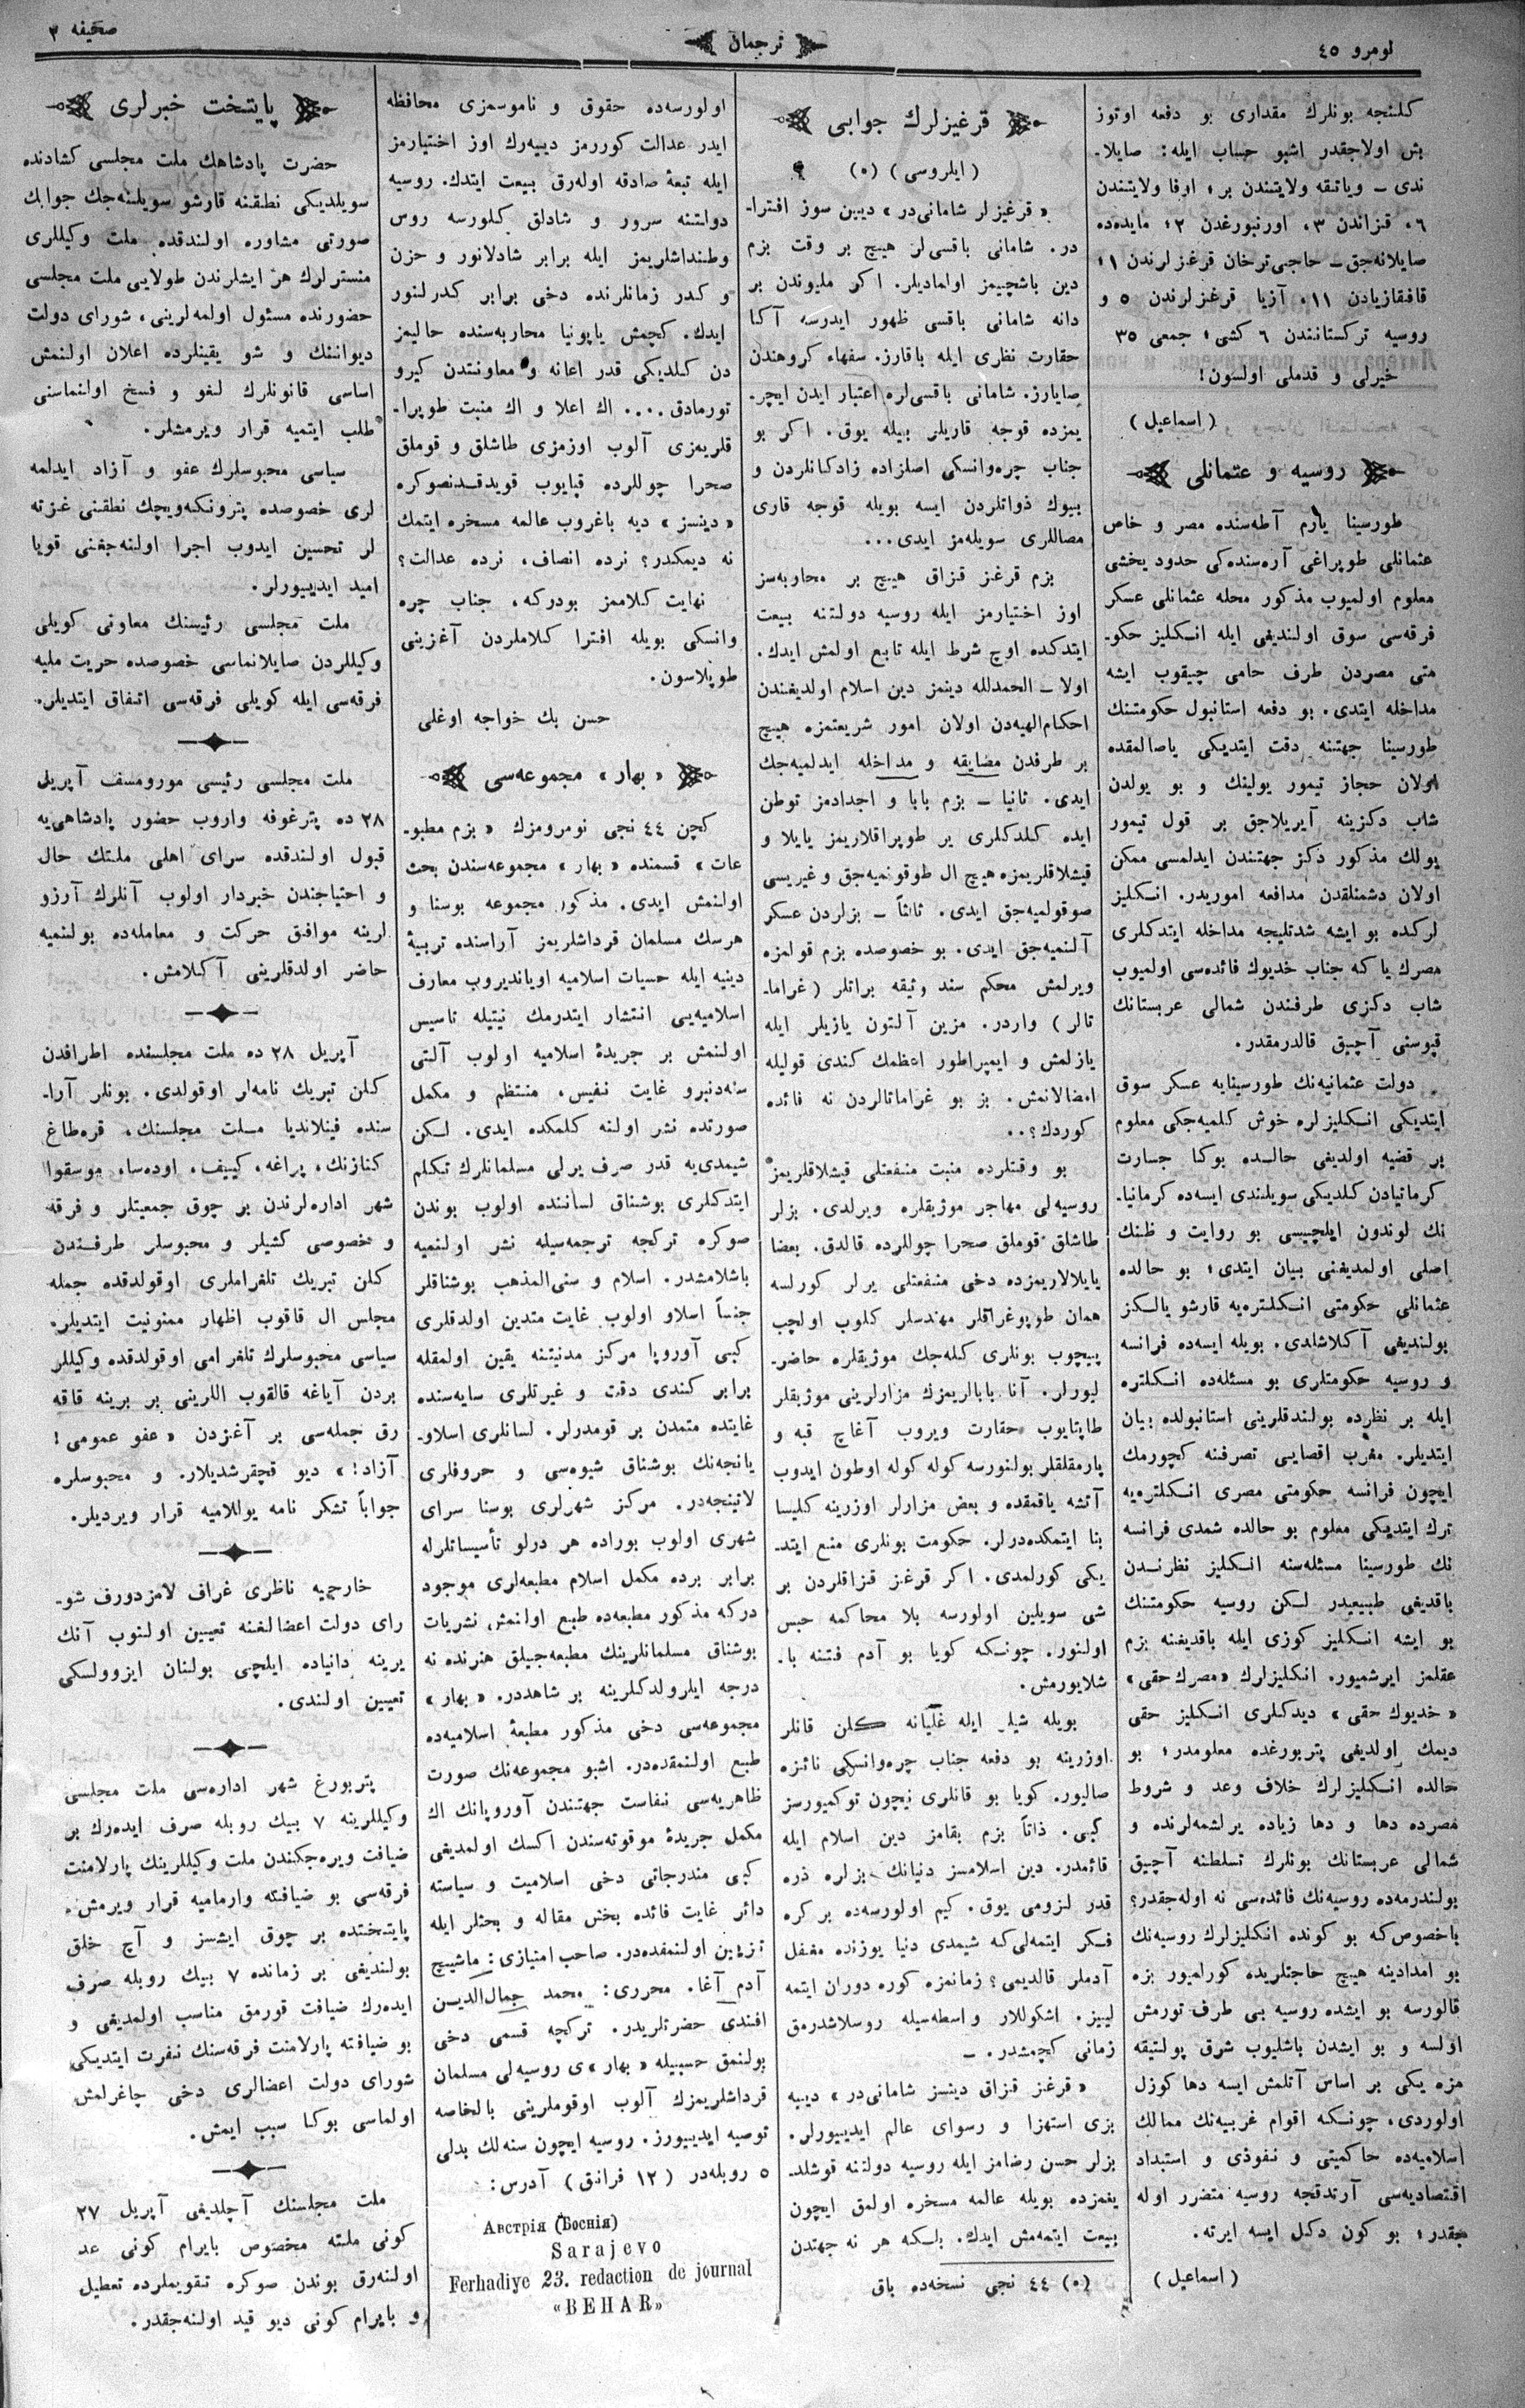 لومرو ٤٥
ترجمان
صحيفه ٣
كلنجه بونلرك مقداری بو دفعه اوتوز
بش اولاجقدر اشبو حساب ايله: صايلا-
ندی – وياتقه ولايتندن بر؛ اوفا ولايتندن
٦، قزاندن ٣، اورنبورغدن ٢؛ مايده‌ده
صايلانه‌جق – حاجی‌ترخان قرغزلرندن ١؛
قافقازيادن ١١، آزيا قرغزلرندن ٥ و
روسيه تركستانندن ٦ كشی؛ جمعی ٣٥
خيرلی و قدملی اولسون!
(اسماعيل)
روسيه و عثمانلی
طورسينا يارم آطه‌سنده مصر و خاص
عثمانلی طوپراغی آره‌سنده‌كی حدود يخشی
معلوم اولميوب مذكور محله عثمانلی عسكر
فرقه‌سی سوق اولنديغی ايله انكليز حكو-
متی مصردن طرف حامی چيقوب ايشه
مداخله ايتدی. بو دفعه استانبول حكومتنك
طورسينا جهتنه دقت ايتديكی ياصالمقده
اولان حجاز تيمور يولينك و بو يولدن
شاب دكزينه آيريلاجق بر قول تيمور
يولك مذكور دكز جهتندن ايدلمسی ممكن
اولان دشمنلقدن مدافعه اموريدر. انكليز
لركده بو ايشه شدتليجه مداخله ايتدكلری
مصرك ياكه جناب خديوك فائده‌سی اولميوب
شاب دكزی طرفندن شمالی عربستانك
قپوسنی آچيق قالدرمقدر.
دولت عثمانيه‌نك طورسينايه عسكر سوق
ايتديكی انكليزلره خوش كلميه‌جكی معلوم
بر قضيه اولديغی حالده بوكا جسارت
كرمانيادن كلديكی سويلندی ايسه‌ده كرمانيا-
نك لوندون ايلچيسی بو روايت و ظنك
اصلی اولمديغنی بيان ايتدی؛ بو حالده
عثمانلی حكومتی انكلتره‌يه قارشو يالكز
بولنديغی آكلاشلدی. بويله ايسه‌ده فرانسه
و روسيه حكومتلری بو مسئله‌ده انكلتره
ايله بر نظرده بولندقلرينی استانبولده بيان
ايتديلر. مغرب اقصایی تصرفنه كچورمك
ايچون فرانسه حكومتی مصری انكلتره‌يه
ترك ايتديكی معلوم بو حالده شمدی فرانسه
نك طورسينا مسئله‌سنه انكليز نظرندن
باقديغی طبيعيدر لكن روسيه حكومتنك
بو ايشه انكليز كوزی ايله باقديغنه بزم
عقلمز ايرشميور. انكليزلرك «مصرك حقی»
«خديوك حقی» ديدكلری انكليز حقی
ديمك اولديغی پتربورغده معلومدر؛ بو
حالده انكليزلرك خلاف وعد و شروط
مصرده دها و دها زياده يرلشمه‌لرنده و
شمالی عربستانك بونلرك تسلطنه آچيق
بولندرمه‌ده روسيه‌نك فائده‌سی نه اوله‌جقدر؟
باخصوص‌كه بو كونده انكليزلرك روسيه‌نك
بو امدادينه هيچ حاجتلريده كورلميور بزه
قالورسه بو ايشده روسيه بی طرف تورمش
اولسه و بو ايشدن باشليوب شرق پولتيقه
مزه يكی بر اساس آتلمش ايسه دها كوزل
اولوردی، چونكه اقوام غربيه‌نك ممالك
اسلاميه‌ده حاكميتی و نفوذی و استبداد
اقتصاديه‌سی آرتدقجه روسيه متضرر اوله
جقدر؛ بو كون دكل ايسه ايرته.
(اسماعيل)
قرغيزلرك جوابی
(ايلروسی) (٥)
«قرغيزلر شامانی‌در» ديين سوز افترا-
در. شامانی باقسی‌لر هيچ بر وقت بزم
دين باشچيمز اولماديلر. اكر مليوندن بر
دانه شامانی باقسی ظهور ايدرسه آكا
حقارت نظری ايله باقارز. سفهاء كروهندن
صايارز. شامانی باقسی‌لره اعتبار ايدن ايچر-
يمزده قوجه قاريلر بيله يوق. اكر بو
جناب چره‌وانسكی اصلزاده زادكانلردن و
بيوك ذواتلردن ايسه بويله قوجه قاری
مصاللری سويله‌مز ايدی...
بزم قرغز قزاق هيچ بر محاربه‌سز
اوز اختيارمز ايله روسيه دولتنه بيعت
ايتدكده اوچ شرط ايله تابع اولمش ايدك.
اولا – الحمدلله دينمز دين اسلام اولديغندن
احكام‌الهيه‌دن اولان امور شريعتمزه هيچ
بر طرفدن مضايقه و مداخله ايدلميه‌جك
ايدی. ثانيا – بزم بابا و اجدادمز توطن
ايده كلدكلری ير طوپراقلاريمز يايلا و
قيشلاقلريمزه هيچ ال طوقونميه‌جق و غيريسی
صوقولميه‌جق ايدی. ثالثاً – بزلردن عسكر
آلنميه‌جق ايدی. بو خصوصده بزم قولمزه
ويرلمش محكم سند وثيقه براتلر (غراما-
تالر) واردر. مزين آلتون يازيلر ايله
يازلمش و ايمپراطور اعظمك كندی قوليله
امضالانمش. بز بو غراماتالردن نه فائده
كوردك؟..
بو وقتلرده منبت منفعتلی قيشلاقلريمز
روسيه‌لی مهاجر موژيقلره ويرلدی. بزلر
طاشلق قوملق صحرا چوللرده قالدق. بعضا
يايلالاريمزده دخی منفعتلی يرلر كورلسه
همان طوپوغرافلر مهندسلر كلوب اولچب
پيچوب بونلری كله‌جك موژيقلره حاضر-
ليورلر. آنا بابالريمزك مزارلرينی موژيقلر
طاپتايوب حقارت ويروب آغاچ قبه و
پارمقلقلر بولنورسه كوله كوله اوطون ايدوب
آتشه ياقمقده و بعض مزارلر اوزرينه كليسا
بنا ايتمكده‌درلر. حكومت بونلری منع ايتد-
يكی كورلمدی. اكر قرغز قزاقلردن بر
شی سويلين اولورسه بلا محاكمه حبس
اولنور. چونكه كويا بو آدم فتنه با-
شلايورمش.
بويله شيلر ايله غليانه كلن قانلر
اوزرينه بو دفعه جناب چره‌وانسكی نائزه
صاليور. كويا بو قانلری نيچون توكميورسز
كبی. ذاتاً بزم بقامز دين اسلام ايله
قائمدر. دين اسلامسز دنيانك بزلره ذره
قدر لزومی يوق. كيم اولورسه‌ده بر كره
فكر ايتمه‌لی‌كه شيمدی دنيا يوزنده مغفل
آدملر قالديمی؟ زمانمزه كوره دوران ايتمه
ليیز. اشكوللار واسطه‌سيله روسلاشدرمق
زمانی كچمشدر. –
«قرغز قزاق دينسز شامانی‌در» دييه
بزی استهزا و رسوای عالم ايدييورلر.
بزلر حسن رضامز ايله روسيه دولتنه قوشلد-
يغمزده بويله عالمه مسخره اولمق ايچون
بيعت ايتمه‌مش ايدك. بلكه هر نه جهتدن
(٥) ٤٤ نجی نسخه‌ده باق
اولورسه‌ده حقوق و ناموسمزی محافظه
ايدر عدالت كوررمز دييه‌رك اوز اختيارمز
ايله تبعهٔ صادقه اوله‌رق بيعت ايتدك. روسيه
دولتنه سرور و شادلق كلورسه روس
وطنداشلريمز ايله برابر شادلانور و حزن
و كدر زمانلرنده دخی برابر كدرلنور
ايدك. كچمش ياپونيا محاربه‌سنده حاليمز
دن كلديكی قدر اعانه و معاونتدن كيرو
تورمادق.... اك اعلا و اك منبت طوپرا-
قلريمزی آلوب اوزمزی طاشلق و قوملق
صحرا چوللرده قپايوب قويدقدنصوكره
«دينسز» ديه باغروب عالمه مسخره ايتمك
نه ديمكدر؟ نرده انصاف، نرده عدالت؟
نهايت كلاممز بودركه، جناب چره
وانسكی بويله افترا كلاملردن آغزينی
طوپلاسون.
حسن بك خواجه اوغلی
«بهار» مجموعه‌سی
كچن ٤٤ نجی نومرومزك «بزم مطبو-
عات» قسمنده «بهار» مجموعه‌سندن بحث
اولنمش ايدی. مذكور مجموعه بوسنا و
هرسك مسلمان قرداشلريمز آراسنده تربيهٔ
دينيه ايله حسيات اسلاميه اوياندیروب معارف
اسلاميه‌يی انتشار ايتدرمك نيتيله تاسيس
اولنمش بر جريدهٔ اسلاميه اولوب آلتی
سنه‌دنبرو غايت نفيس، منتظم و مكمل
صورتده نشر اولنه كلمكده ايدی. لكن
شيمدی‌يه قدر صرف يرلی مسلمانلرك تكلم
ايتدكلری بوشناق لساننده اولوب بوندن
صوكره تركجه ترجمه‌سيله نشر اولنميه
باشلامشدر. اسلام و سنی‌المذهب بوشناقلر
جنساً اسلاو اولوب غايت متدين اولدقلری
كبی آوروپا مركز مدنيتنه يقين اولمقله
برابر كندی دقت و غيرتلری سايه‌سنده
غايتده متمدن بر قومدرلر. لسانلری اسلاو-
يانجه‌نك بوشناق شيوه‌سی و حروفلری
لاتينجه‌در. مركز شهرلری بوسنا سرای
شهری اولوب بوراده هر درلو تأسيساتلرله
برابر برده مكمل اسلام مطبعه‌لری موجود
دركه مذكور مطبعه‌ده طبع اولنمش نشريات
بوشناق مسلمانلرينك مطبعه‌جيلق هنرنده نه
درجه ايلرولدكلرينه بر شاهددر. «بهار»
مجموعه‌سی دخی مذكور مطبعهٔ اسلاميه‌ده
طبع اولنمقده‌در. اشبو مجموعه‌نك صورت
ظاهريه‌سی نفاست جهتندن آوروپانك اك
مكمل جريدهٔ موقوته‌سندن اكسك اولمديغی
كبی مندرجاتی دخی اسلاميت و سياسته
دائر غايت فائده بخش مقاله و بحثلر ايله
تزيين اولنمقده‌در. صاحب امتيازی: ماشيچ
آدم آغا. محرری: محمد جمال‌الدين
افندی حضرتلريدر. تركچه قسمی دخی
بولنمق حسبيله «بهار»ی روسيه‌لی مسلمان
قرداشلريمزك آلوب اوقوملرينی بالخاصه
توصيه ايدييورز. روسيه ايچون سنه‌لك بدلی
٥ روبله‌در (١٢ فرانق) آدرس:
Австрія (Боснія)
Sarajevo
Ferhadiye 23. redaction de journal
«BEHAR»
پايتخت خبرلری
حضرت پادشاهك ملت مجلسی كشادنده
سويلديكی نطقنه قارشو سويلنه‌جك جوابك
صورتی مشاوره اولندقده ملت وكيللری
منسترلرك هر ايشلرندن طولایی ملت مجلسی
حضورنده مسئول اولمه‌لرينی، شورای دولت
ديواننك و شو يقينلرده اعلان اولنمش
اساسی قانونلرك لغو و فسخ اولنماسنی
طلب ايتميه قرار ويرمشلر.
سياسی محبوسلرك عفو و آزاد ايدلمه
لری خصوصده پترونكه‌ويچك نطقنی غزته
لر تحسين ايدوب اجرا اولنه‌جغنی قويا
اميد ايدييورلر.
ملت مجلسی رئيسنك معاونی كويلی
وكيللردن صايلانماسی خصوصده حريت مليه
فرقه‌سی ايله كويلی فرقه‌سی اتفاق ايتديلر.
ملت مجلسی رئيسی مورومسف آپريل
٢٨ ده پترغوفه واروب حضور پادشاهی‌يه
قبول اولندقده سرای اهلی ملتك حال
و احتياجندن خبردار اولوب آنلرك آرزو
لرينه موافق حركت و معامله‌ده بولنميه
حاضر اولدقلرينی آكلامش.
آپريل ٢٨ ده ملت مجلسنده اطرافدن
كلن تبريك نامه‌لر اوقولدی. بونلر آرا-
سنده فينلانديا ملت مجلسنك، قره‌طاغ
كنازنك، پراغه، كييف، اوده‌سا، موسقوا
شهر اداره‌لرندن بر چوق جمعيتلر و فرقه
و خصوصی كشيلر و محبوسلر طرفندن
كلن تبريك تلغراملری اوقولدقده جمله
مجلس ال قاقوب اظهار ممنونيت ايتديلر.
سياسی محبوسلرك تلغرامی اوقولدقده وكيللر
بردن آياغه قالقوب اللرينی بر برينه قاقه
رق جمله‌سی بر آغزدن «عفو عمومی!
آزاد!» ديو قچقرشديلار. و محبوسلره
جواباً تشكر نامه يوللاميه قرار ويرديلر.
خارجيه ناظری غراف لامزدورف شو-
رای دولت اعضالغنه تعيين اولنوب آنك
يرينه دانياده ايلچی بولنان ايزوولسكی
تعيين اولندی.
پتربورغ شهر اداره‌سی ملت مجلسی
وكيللرينه ٧ بيك روبله صرف ايده‌رك بر
ضيافت ويره‌جكندن ملت وكيللرينك پارلامنت
فرقه‌سی بو ضيافته وارماميه قرار ويرمش.
پايتختده بر چوق ايشسز و آچ خلق
بولنديغی بر زمانده ٧ بيك روبله صرف
ايده‌رك ضيافت قورمق مناسب اولمديغی و
بو ضيافته پارلامنت فرقه‌سنك نفرت ايتديكی
شورای دولت اعضالری دخی چاغرلمش
اولماسی بوكا سبب ايمش.
ملت مجلسنك آچلديغی آپريل ٢٧
كونی ملته مخصوص بايرام كونی عد
اولنه‌رق بوندن صوكره تقويملرده تعطيل
و بايرام كونی ديو قيد اولنه‌جقدر.